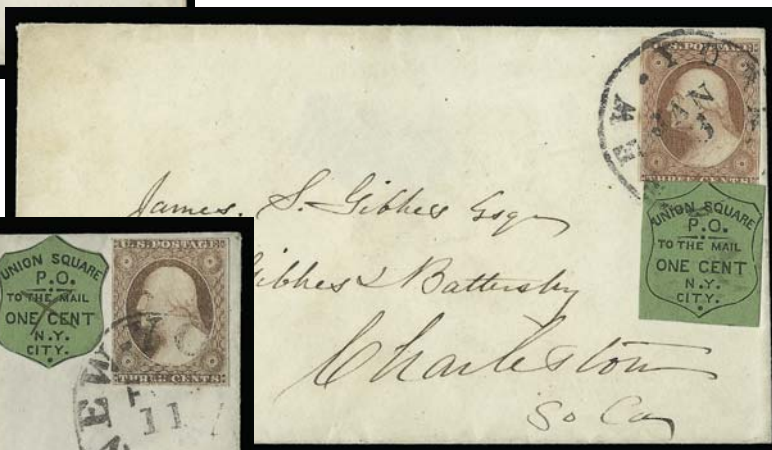 U.S. POSTAGE
THREE CENTS
JAN
UNION SQUARE
P.O.
TO THE MAIL
ONE CENT
N.Y.
CITY.
James. S. Gibbes Esqr
Gibbes & Battersby
Charleston
So Ca
UNION SQUARE
P.O.
TO THE MAIL
ONE CENT
N.Y.
CITY.
U.S. POSTAGE
THREE CENTS
NEW YO
11